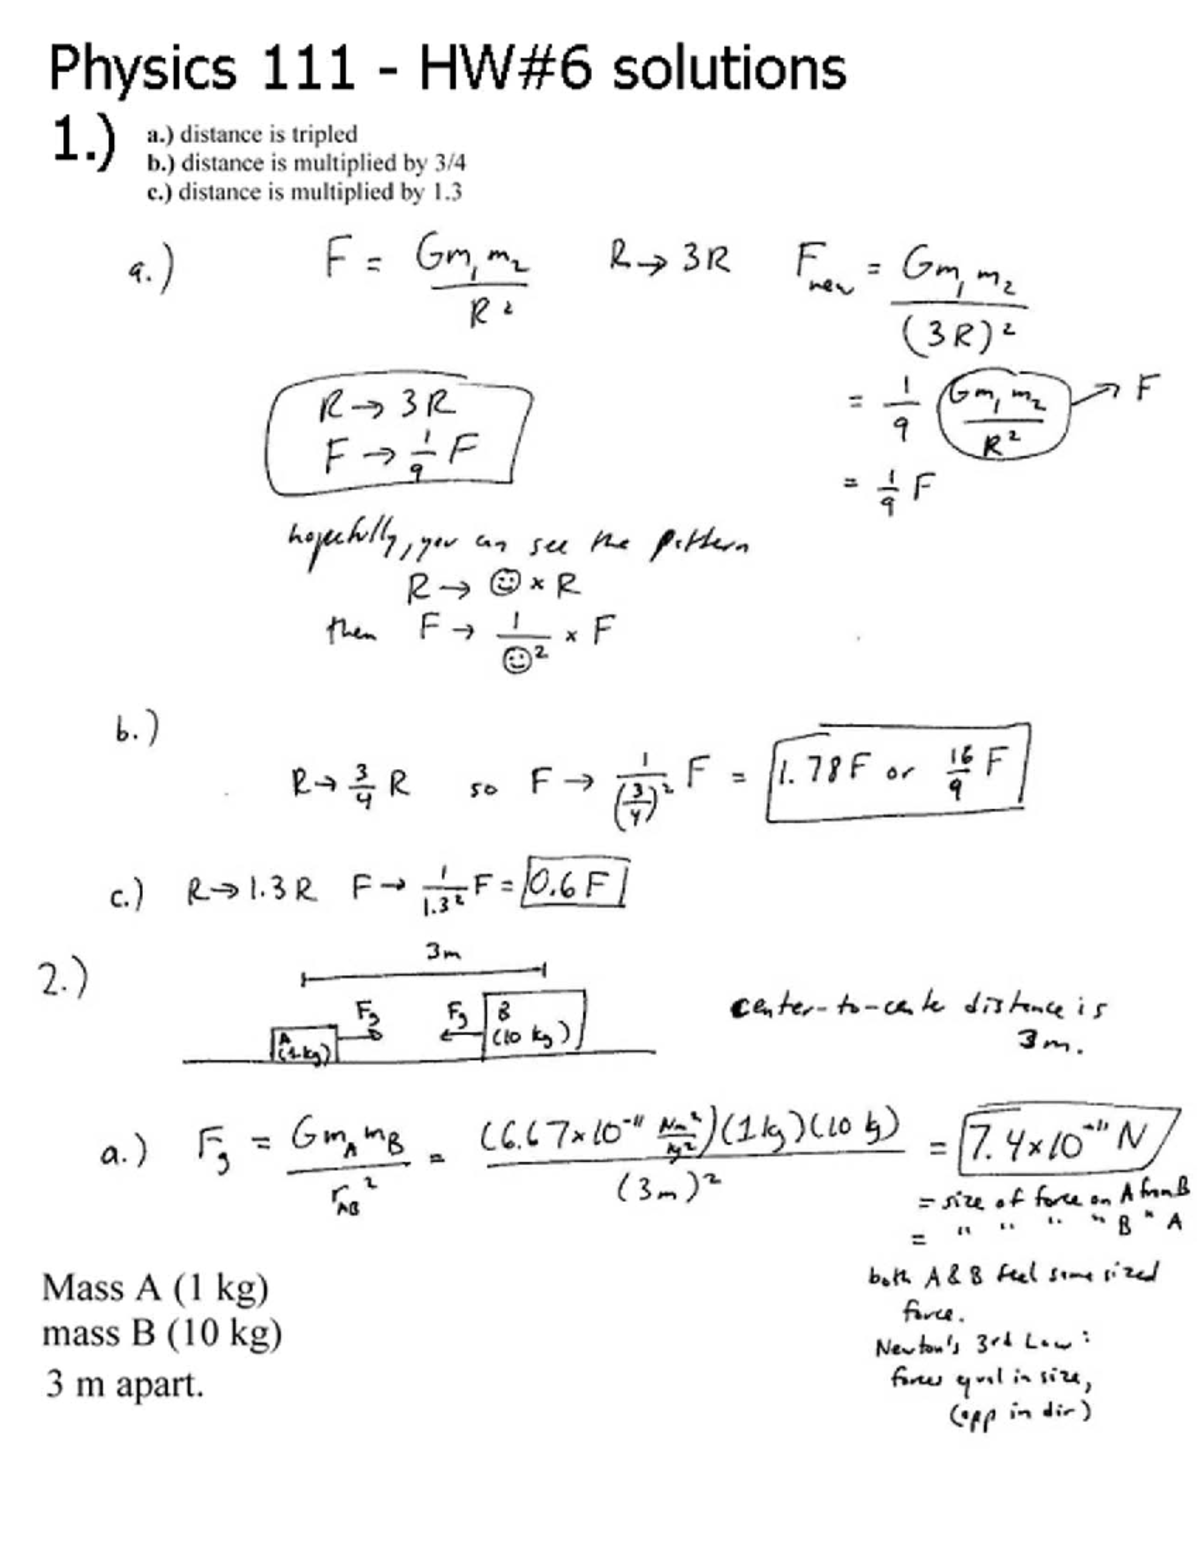 Physics 111 - HW#6 solutions
1.) a.) distance is tripled
b.) distance is multiplied by 3/4
c.) distance is multiplied by 1.3
a.) F = Gm₁m₂ / R² R → 3R F_new = Gm₁m₂ / (3R)²
= 1/9 (Gm₁m₂ / R²) → F
= 1/9 F
R → 3R
F → 1/9 F
hopefully, you can see the pattern
R → ☺ × R
then F → 1/☺² × F
b.)
R → 3/4 R so F → 1/(3/4)² F = 1.78F or 16/9 F
c.) R → 1.3R F → 1/1.3² F = 0.6F
2.)
3m
A (1kg) Fg Fg B (10 kg)
center-to-center distance is
3m.
a.) Fg = Gm_A m_B / r_AB² = (6.67×10⁻¹¹ Nm²/kg²)(1kg)(10 kg) / (3m)² = 7.4×10⁻¹¹ N
= size of force on A from B
= " " " " B " A
both A & B feel same sized
force.
Newton's 3rd Law:
forces equal in size,
(opp in dir)
Mass A (1 kg)
mass B (10 kg)
3 m apart.